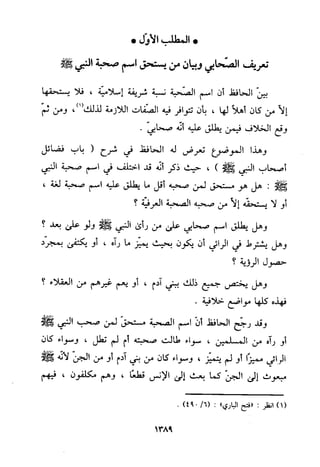 * المطلب الأول *
تعريف الصحابي وبيان من يستحق اسم صحبة النبي ﷺ
بين الحافظ أن اسم الصحبة نسبة شريفة إسلامية ، فلا يستحقها
إلا من كان أهلاً لها ، بأن تتوافر فيه الصفات اللازمة لذلك(١)، ومن ثم
وقع الخلاف فيمن يطلق عليه أنه صحابي .
وهذا الموضوع تعرض له الحافظ في شرح ( باب فضائل
أصحاب النبي ﷺ ) ، حيث ذكر أنه قد اختلف في اسم صحبة النبي
ﷺ : هل هو مستحق لمن صحبه أقل ما يطلق عليه اسم صحبة لغة ،
أو لا يستحقه إلا من صحبه الصحبة العرفية ؟
وهل يطلق اسم صحابي على من رأى النبي ﷺ ولو على بعد ؟
وهل يشترط في الرائي أن يكون بحيث يميز ما رآه ، أو يكتفى بمجرد
حصول الرؤية ؟
وهل يختص جميع ذلك ببني آدم ، أو يعم غيرهم من العقلاء ؟
فهذه كلها مواضع خلافية .
وقد رجح الحافظ أن اسم الصحبة مستحق لمن صحب النبي ﷺ
أو رآه من المسلمين ، سواء طالت صحبته أم لم تطل ، وسواء كان
الرائي مميزاً أو لم يتميز ، وسواء كان من بني آدم أو من الجن لأنه ﷺ
مبعوث إلى الجن كما بعث إلى الإنس قطعًا ، وهم مكلفون ، فيهم
(١) انظر : «فتح الباري» : (٦/ ٤٩٠) .
١٣٨٩